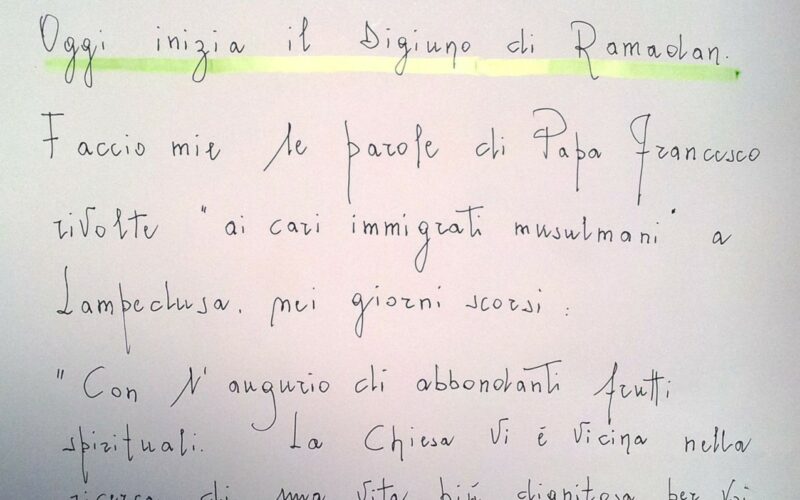 Oggi inizia il Digiuno di Ramadan.
Faccio mie le parole di Papa Francesco
rivolte "ai cari immigrati musulmani" a
Lampedusa, nei giorni scorsi:
"Con l'augurio di abbondanti frutti
spirituali. La Chiesa Vi é Vicina nella
ricerca di una vita più dignitosa per Voi